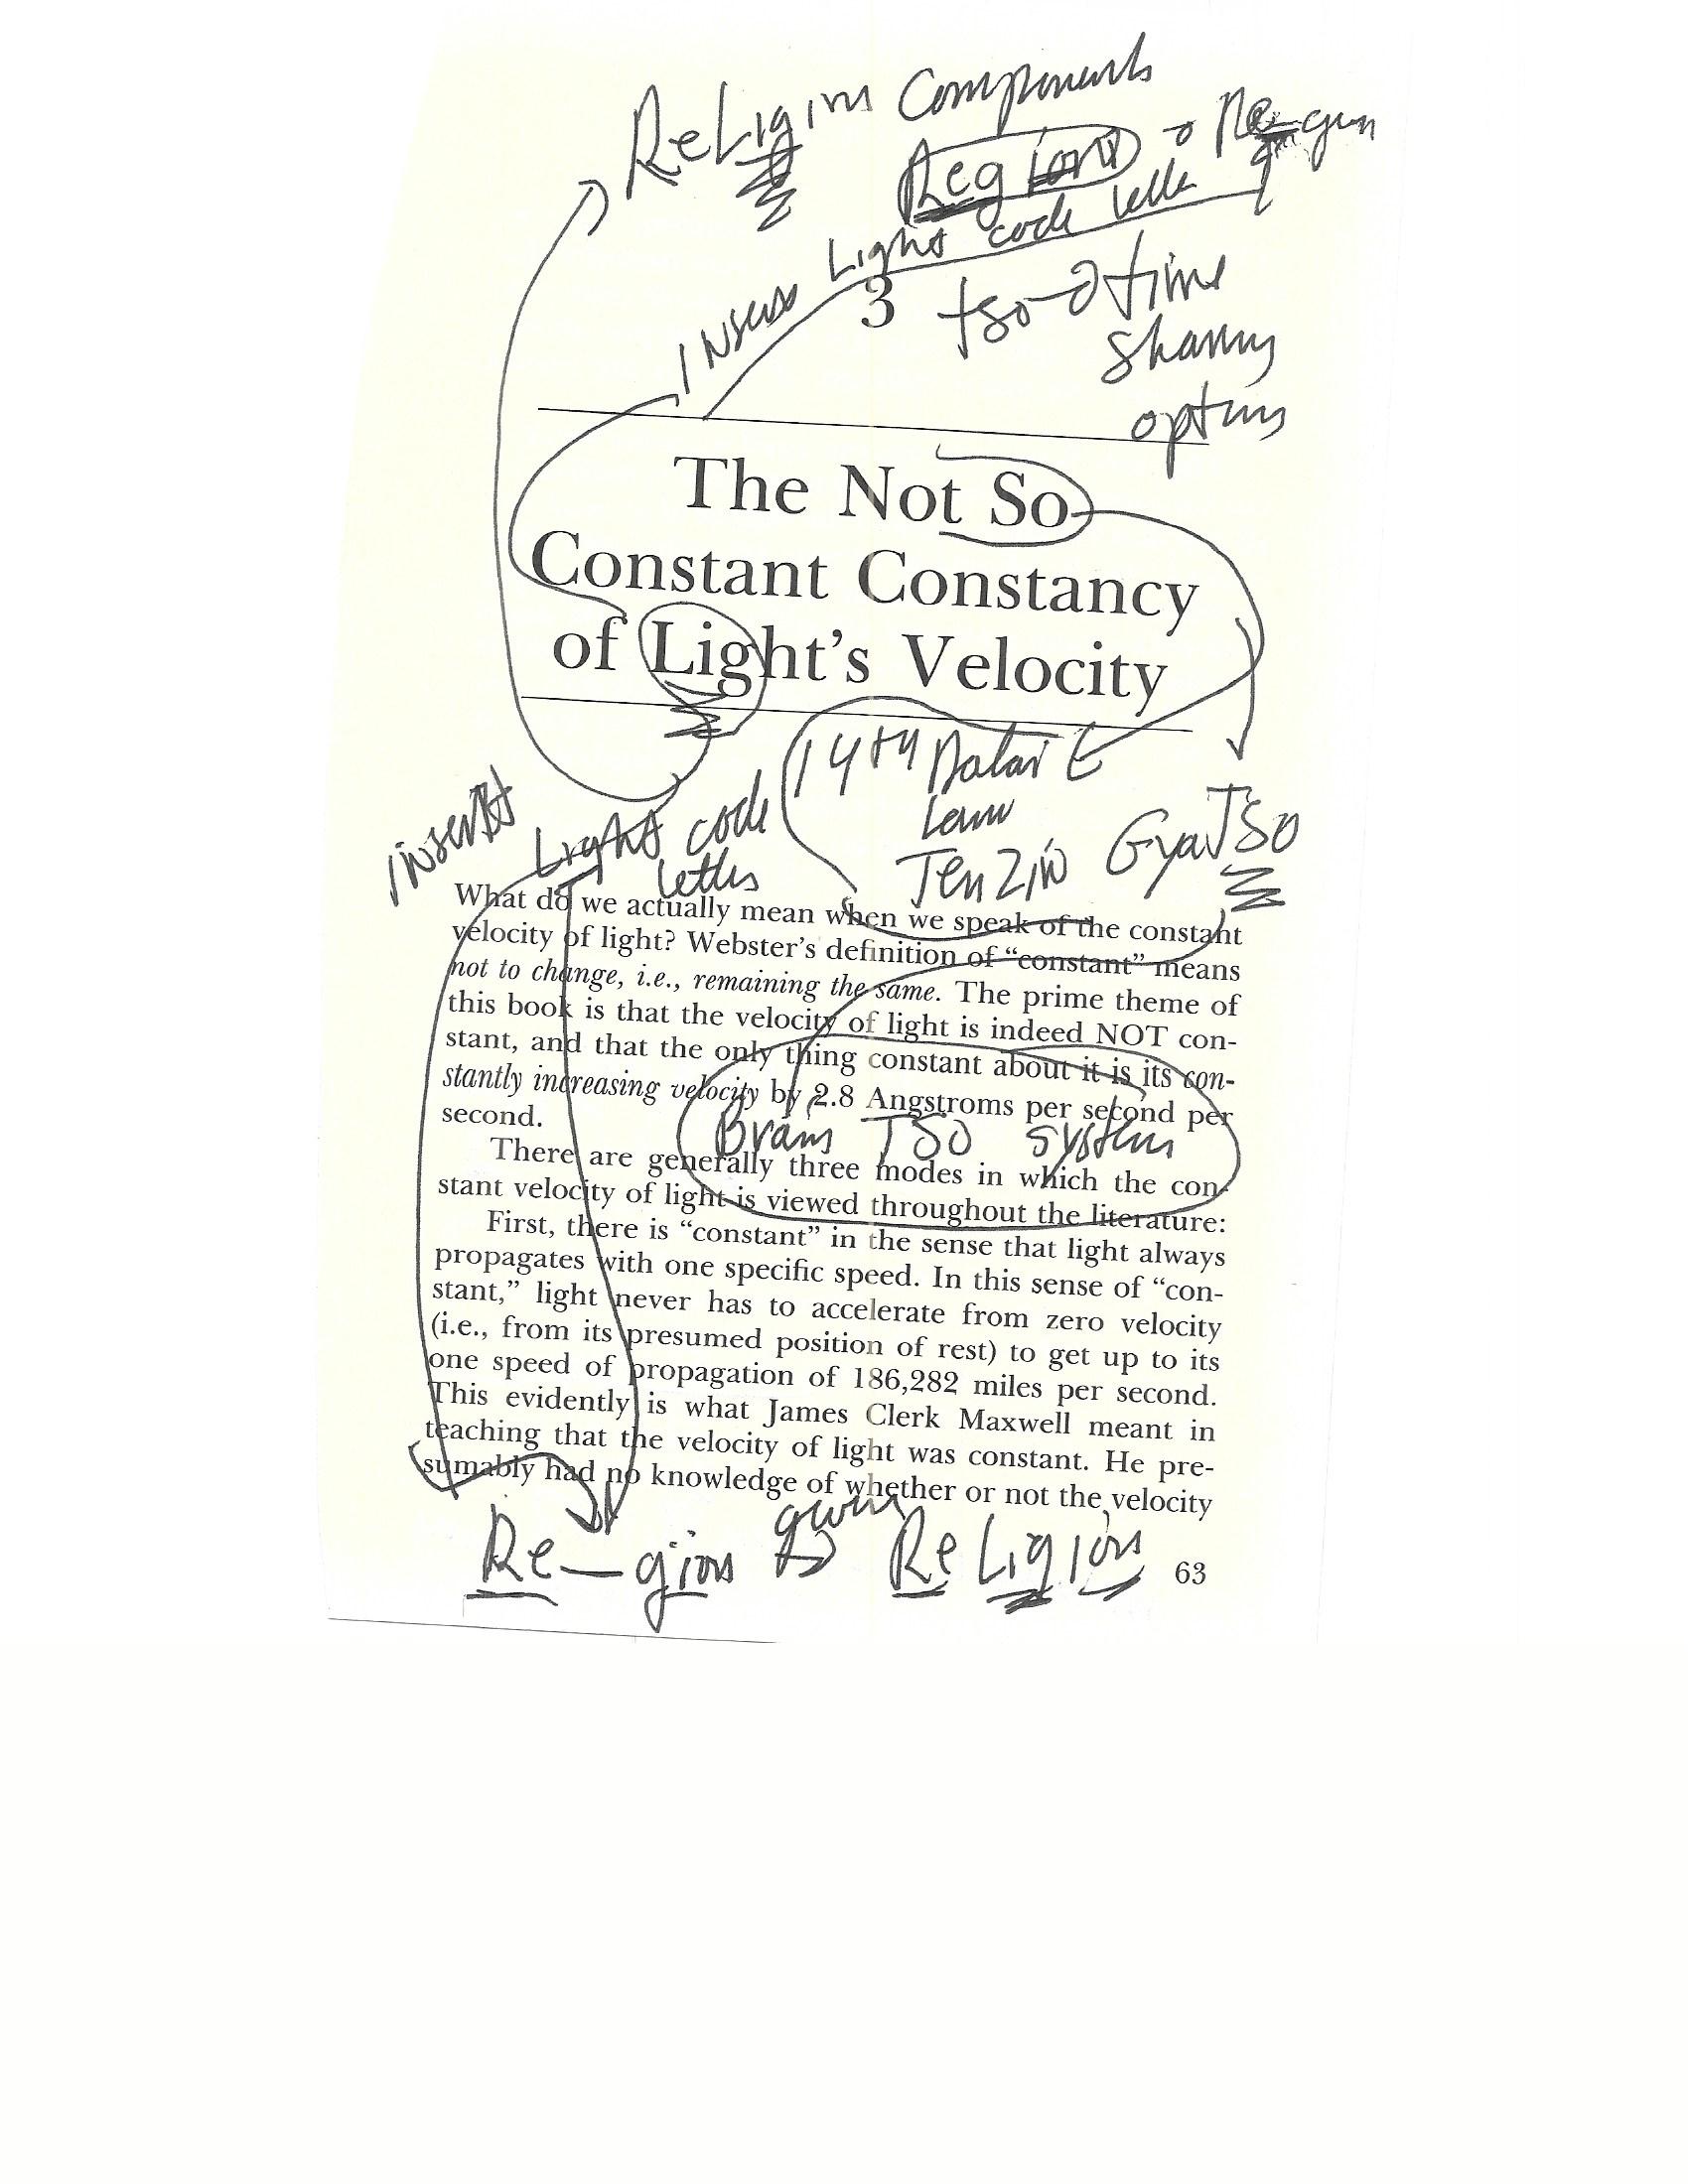 ReLigion Components
Region → Re-gion
Insert Light code letters
3
tso → time
sharing
options
The Not So
Constant Constancy
of Light's Velocity
14th Dalai
Lama
Tenzin GyaTSO
insert
Light code
letters
What do we actually mean when we speak of the constant
velocity of light? Webster's definition of “constant” means
not to change, i.e., remaining the same. The prime theme of
this book is that the velocity of light is indeed NOT con-
stant, and that the only thing constant about it is its con-
stantly increasing velocity by 2.8 Angstroms per second per
second.
Brain's TSO system
There are generally three modes in which the con-
stant velocity of light is viewed throughout the literature:
First, there is “constant” in the sense that light always
propagates with one specific speed. In this sense of “con-
stant,” light never has to accelerate from zero velocity
(i.e., from its presumed position of rest) to get up to its
one speed of propagation of 186,282 miles per second.
This evidently is what James Clerk Maxwell meant in
teaching that the velocity of light was constant. He pre-
sumably had no knowledge of whether or not the velocity
Re—gion → ReLigion
63